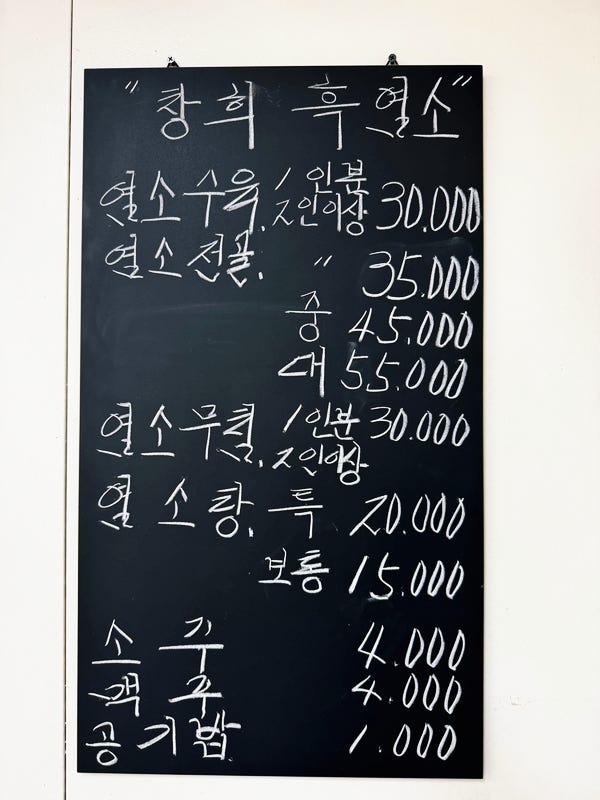 "창희 흑염소"
염소수육, 1인분 30.000
2인이상
염소전골, " 35.000
중 45.000
대 55.000
염소무침, 1인분 30.000
2인이상
염소탕, 특 20.000
보통 15.000
소주 4.000
맥주 4.000
공기밥 1.000